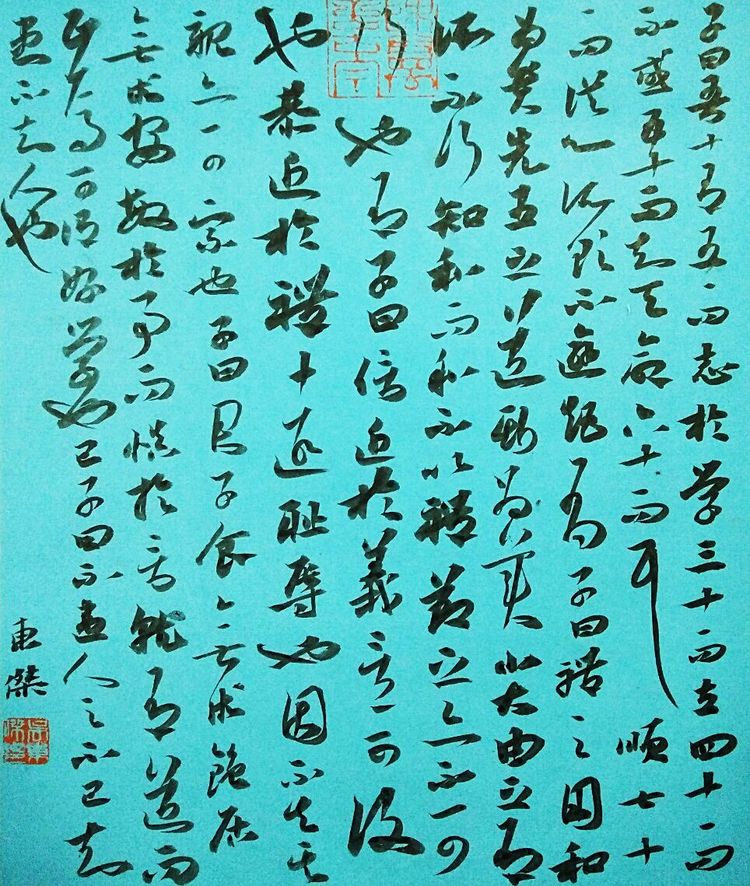 子曰吾十有五而志於学三十而立四十而
不惑五十而知天命六十而耳順七十
而從心所欲不逾矩有子曰禮之用和
為貴先王之道斯為美小大由之有
所不行知和而和不以禮節之亦不可
行也有子曰信近於義言可復
也恭近於禮遠恥辱也因不失其
親亦可宗也子曰君子食無求飽居
無求安敏於事而慎於言就有道而
正焉可謂好学也已子曰不患人之不己知
患不知人也
東傑